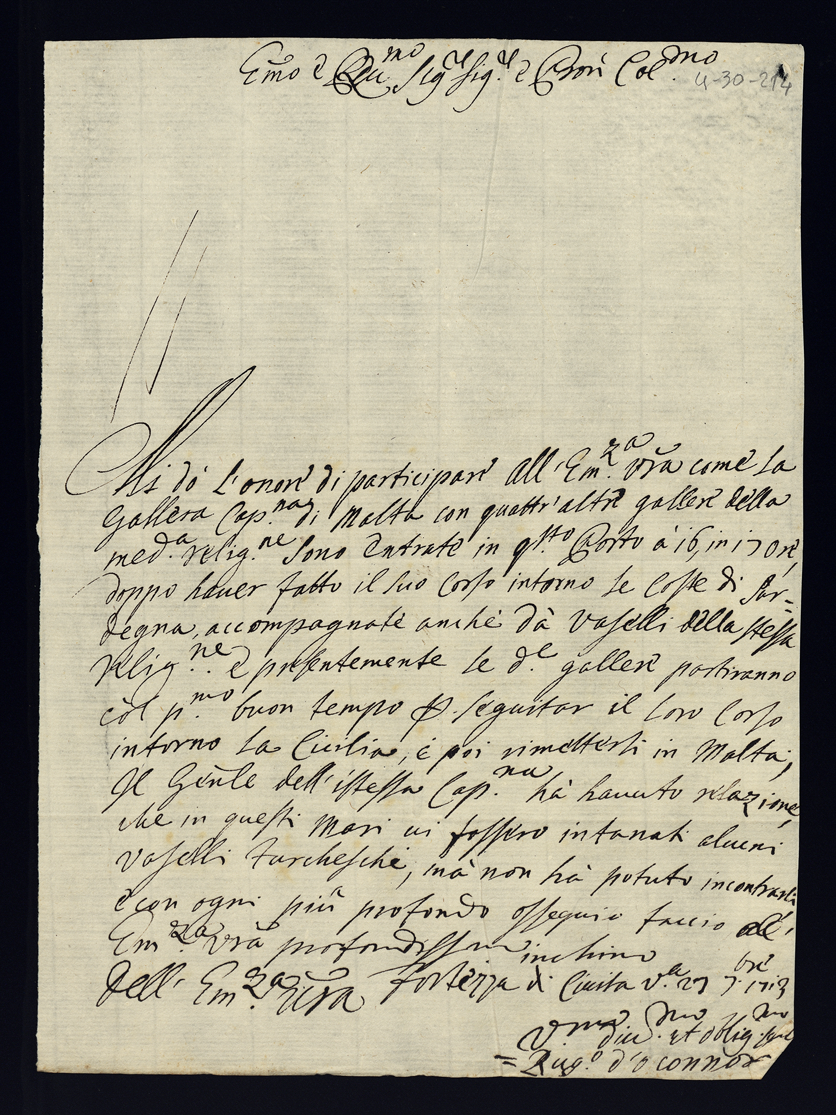 Em̃o e Reu.mo Sig.re Sig.re e Prõn Col.mo
4-30-214
Mi dò l'onore di participare all'Em.za vrã come la
Gallera Cap.na di Malta con quattr'altre gallere della
med.a relig.ne sono entrate in q.sto Porto à 16, in 17 ore,
doppo hauer fatto il suo corso intorno le coste di Sar=
degna, accompagnate anche dà vaselli della stessa
relig.ne e presentemente le d.e gallere partiranno
còl p.mo buon tempo p. seguitar il loro corso
intorno la Cicilia, è poi rimettersi in Malta;
Il Gen̄le dell'istessa Cap.na hà hauuto relazione,
che in questi mari ui fossero intanati alcuni
vaselli turcheschi, mà non hà potuto incontrarli
è con ogni più profondo ossequio faccio all'
Em.za vrã profondiss.mo inchino
Dell' Em.za Vrã Fortezza di Ciuita V.a 27 7.bre 1713
V.mo diu.mo et oblig.mo
= Rug.o d'o connor